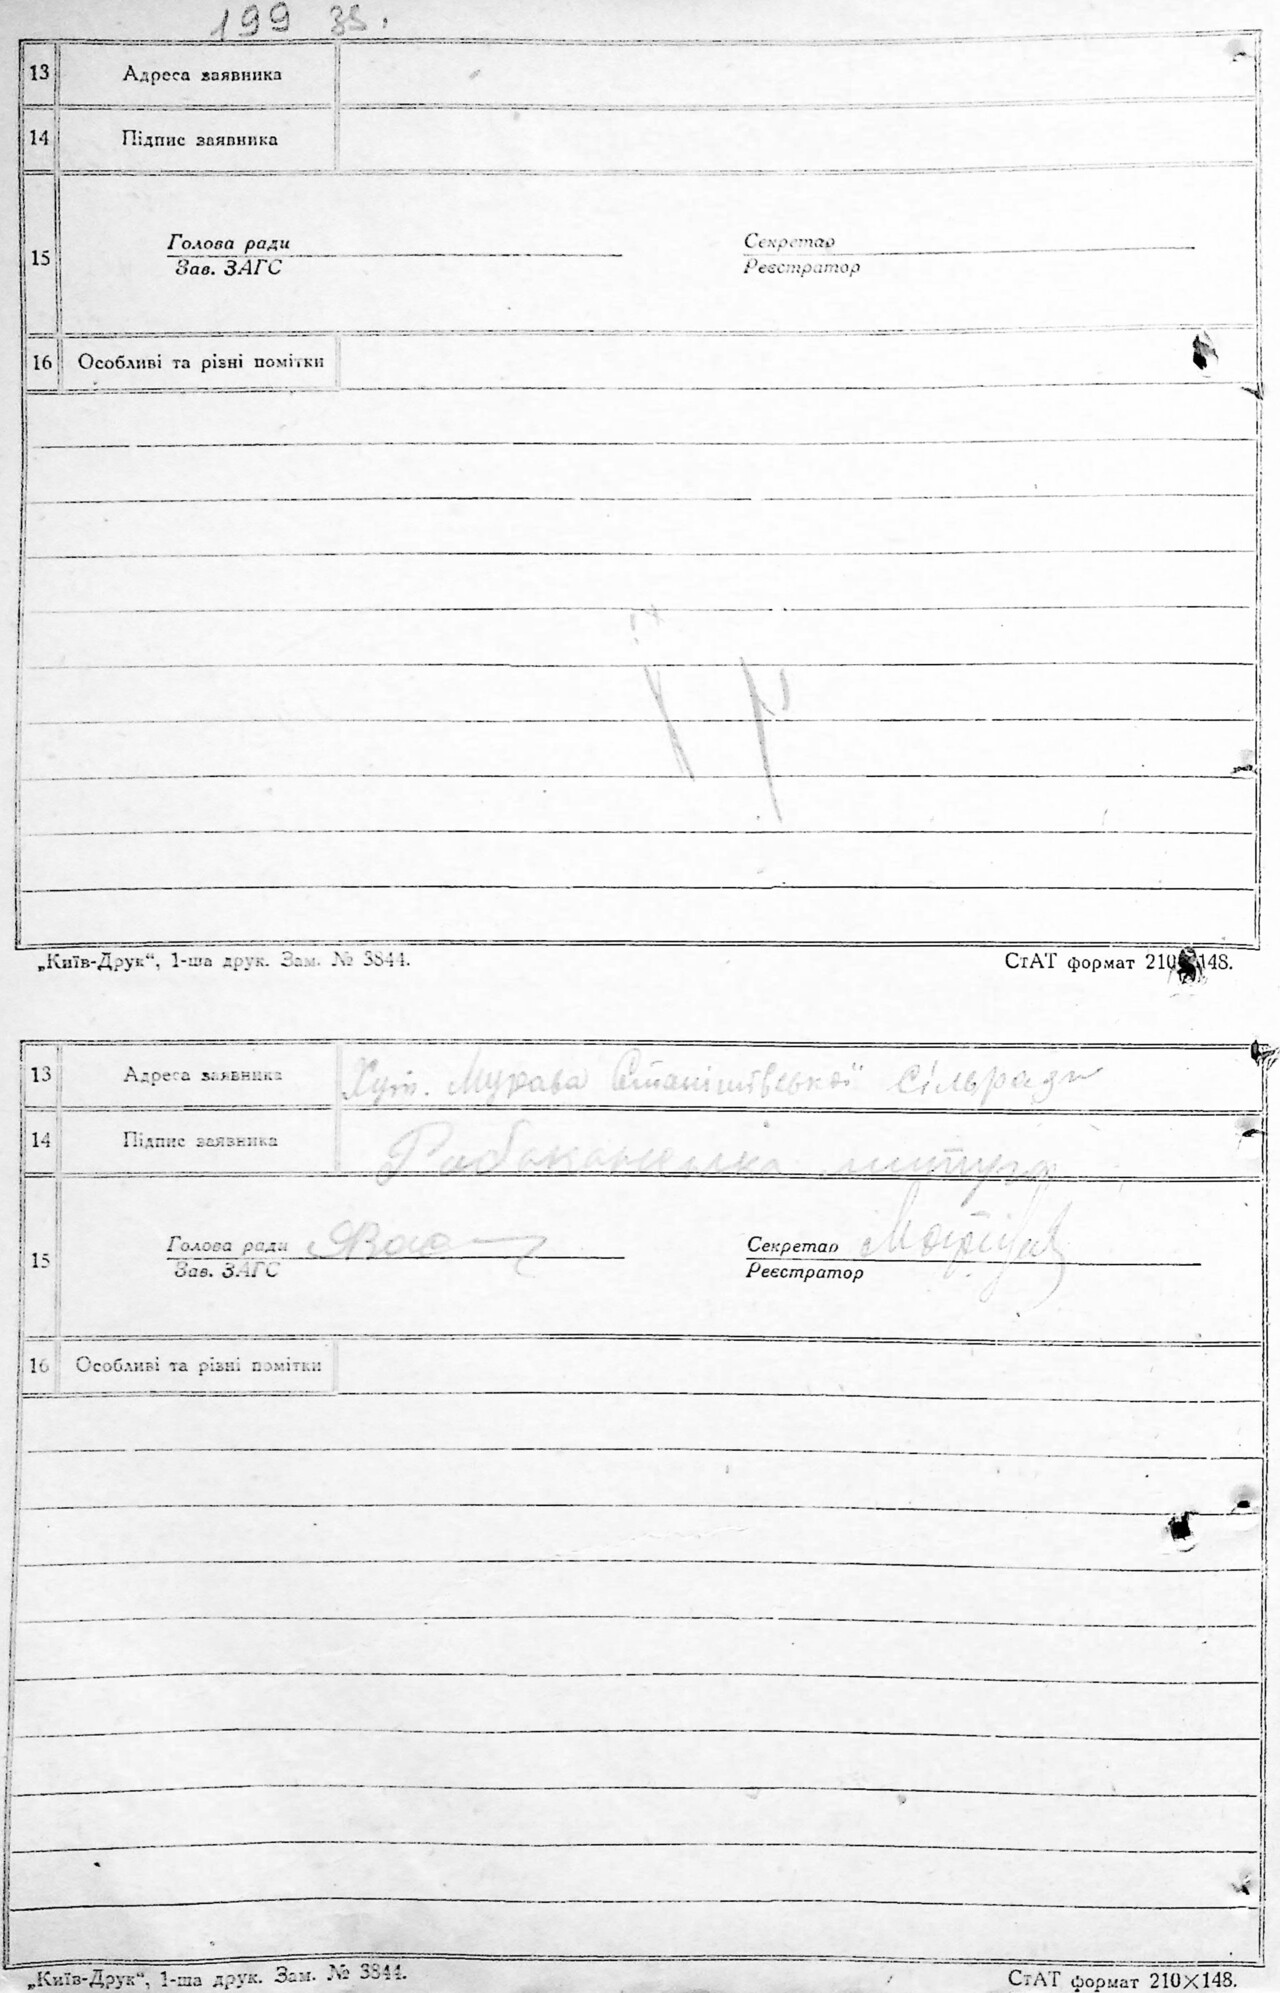 199 зв.
13 Адреса заявника
14 Підпис заявника
15 Голова ради Секретар
Зав. ЗАГС Реєстратор
16 Особливі та різні помітки
„Київ-Друк“, 1-ша друк. Зам. № 3844. СтАТ формат 210×148.
13 Адреса заявника Хут. Мурава сільради
14 Підпис заявника
15 Голова ради Секретар
Зав. ЗАГС Реєстратор
16 Особливі та різні помітки
„Київ-Друк“, 1-ша друк. Зам. № 3844. СтАТ формат 210×148.